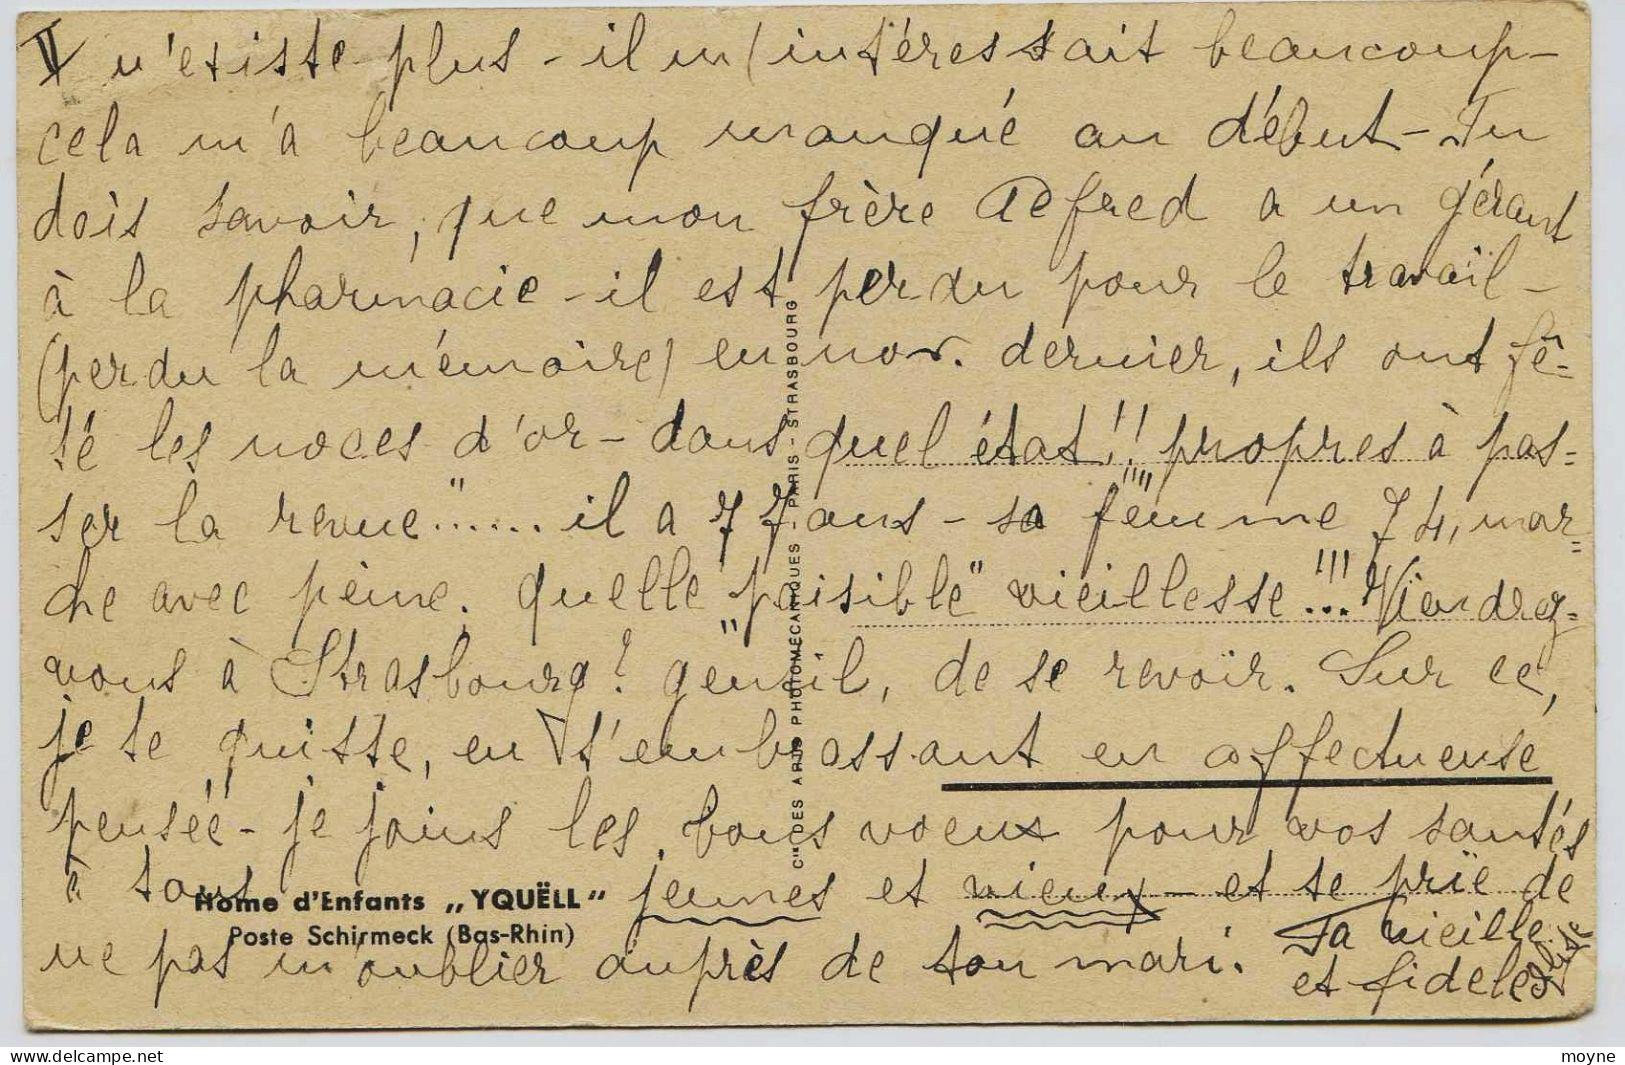 II n'existe plus - il m'intéressait beaucoup -
cela m'a beaucoup manqué au début - Tu
dois savoir, que mon frère Alfred a un gérant
à la pharmacie - il est perdu pour le travaïl -
(perdu la mémoire) en nov. dernier, ils ont fê-
té les noces d'or - dans quel état!! propres à pas=
ser la revue"...... il a 77 ans - sa femme 74, mar=
che avec peine. quelle "paisible" vieillesse!!!... Viendrez-
vous à Strasbourg? gentil, de se revoir. Sur ce,
je te quitte, en t'embrassant en affectueuse
pensée - je joins les bons voeux pour vos santés
à tous jeunes et vieux - et te prie de
ne pas m'oublier auprès de ton mari. Ta vieille
et fidele
Home d'Enfants „YQUËLL"
Poste Schirmeck (Bas-Rhin)
Cie DES ARTS PHOTOMÉCANIQUES, PARIS - STRASBOURG
moyne